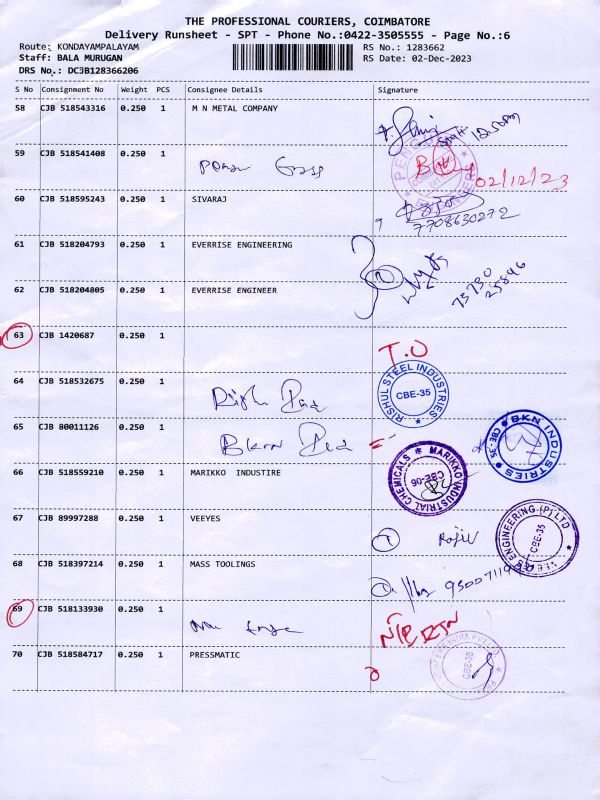 THE PROFESSIONAL COURIERS, COIMBATORE
Delivery Runsheet - SPT - Phone No.:0422-3505555 - Page No.:6
Route: KONDAYAMPALAYAM
RS No.: 1283662
Staff: BALA MURUGAN
RS Date: 02-Dec-2023
DRS No.: DCJB128366206
S No Consignment No Weight PCS Consignee Details Signature
58 CJB 518543316 0.250 1 M N METAL COMPANY
12.50pm
59 CJB 518541408 0.250 1
02/12/23
60 CJB 518595243 0.250 1 SIVARAJ
7708630272
61 CJB 518204793 0.250 1 EVERRISE ENGINEERING
62 CJB 518204805 0.250 1 EVERRISE ENGINEER
73730
25846
63 CJB 1420687 0.250 1
T.O
64 CJB 518532675 0.250 1
RISHUL STEEL INDUSTRIES
CBE-35
65 CJB 80011126 0.250 1
BKN INDUSTRIES
CBE-35
66 CJB 518559210 0.250 1 MARIKKO INDUSTIRE
MARIKKO INDUSTRIAL CHEMICALS
CBE-06
67 CJB 89997288 0.250 1 VEEYES
VEEYES ENGINEERING (P) LTD
CBE-35
68 CJB 518397214 0.250 1 MASS TOOLINGS
69 CJB 518133930 0.250 1
70 CJB 518584717 0.250 1 PRESSMATIC
CBE-35